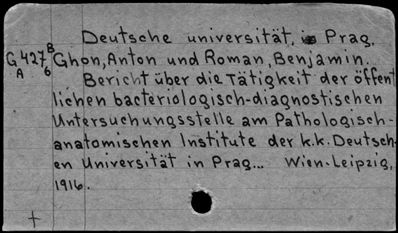 Deutsche universität, Prag.
G427B Ghon, Anton und Roman, Benjamin.
A 6 Bericht über die Tätigkeit der öffent
lichen bacteriologisch-diagnostischen
Untersuchungsstelle am Pathologisch-
anatomischen Institute der k.k. Deutsch-
en Universität in Prag... Wien-Leipzig,
1916.